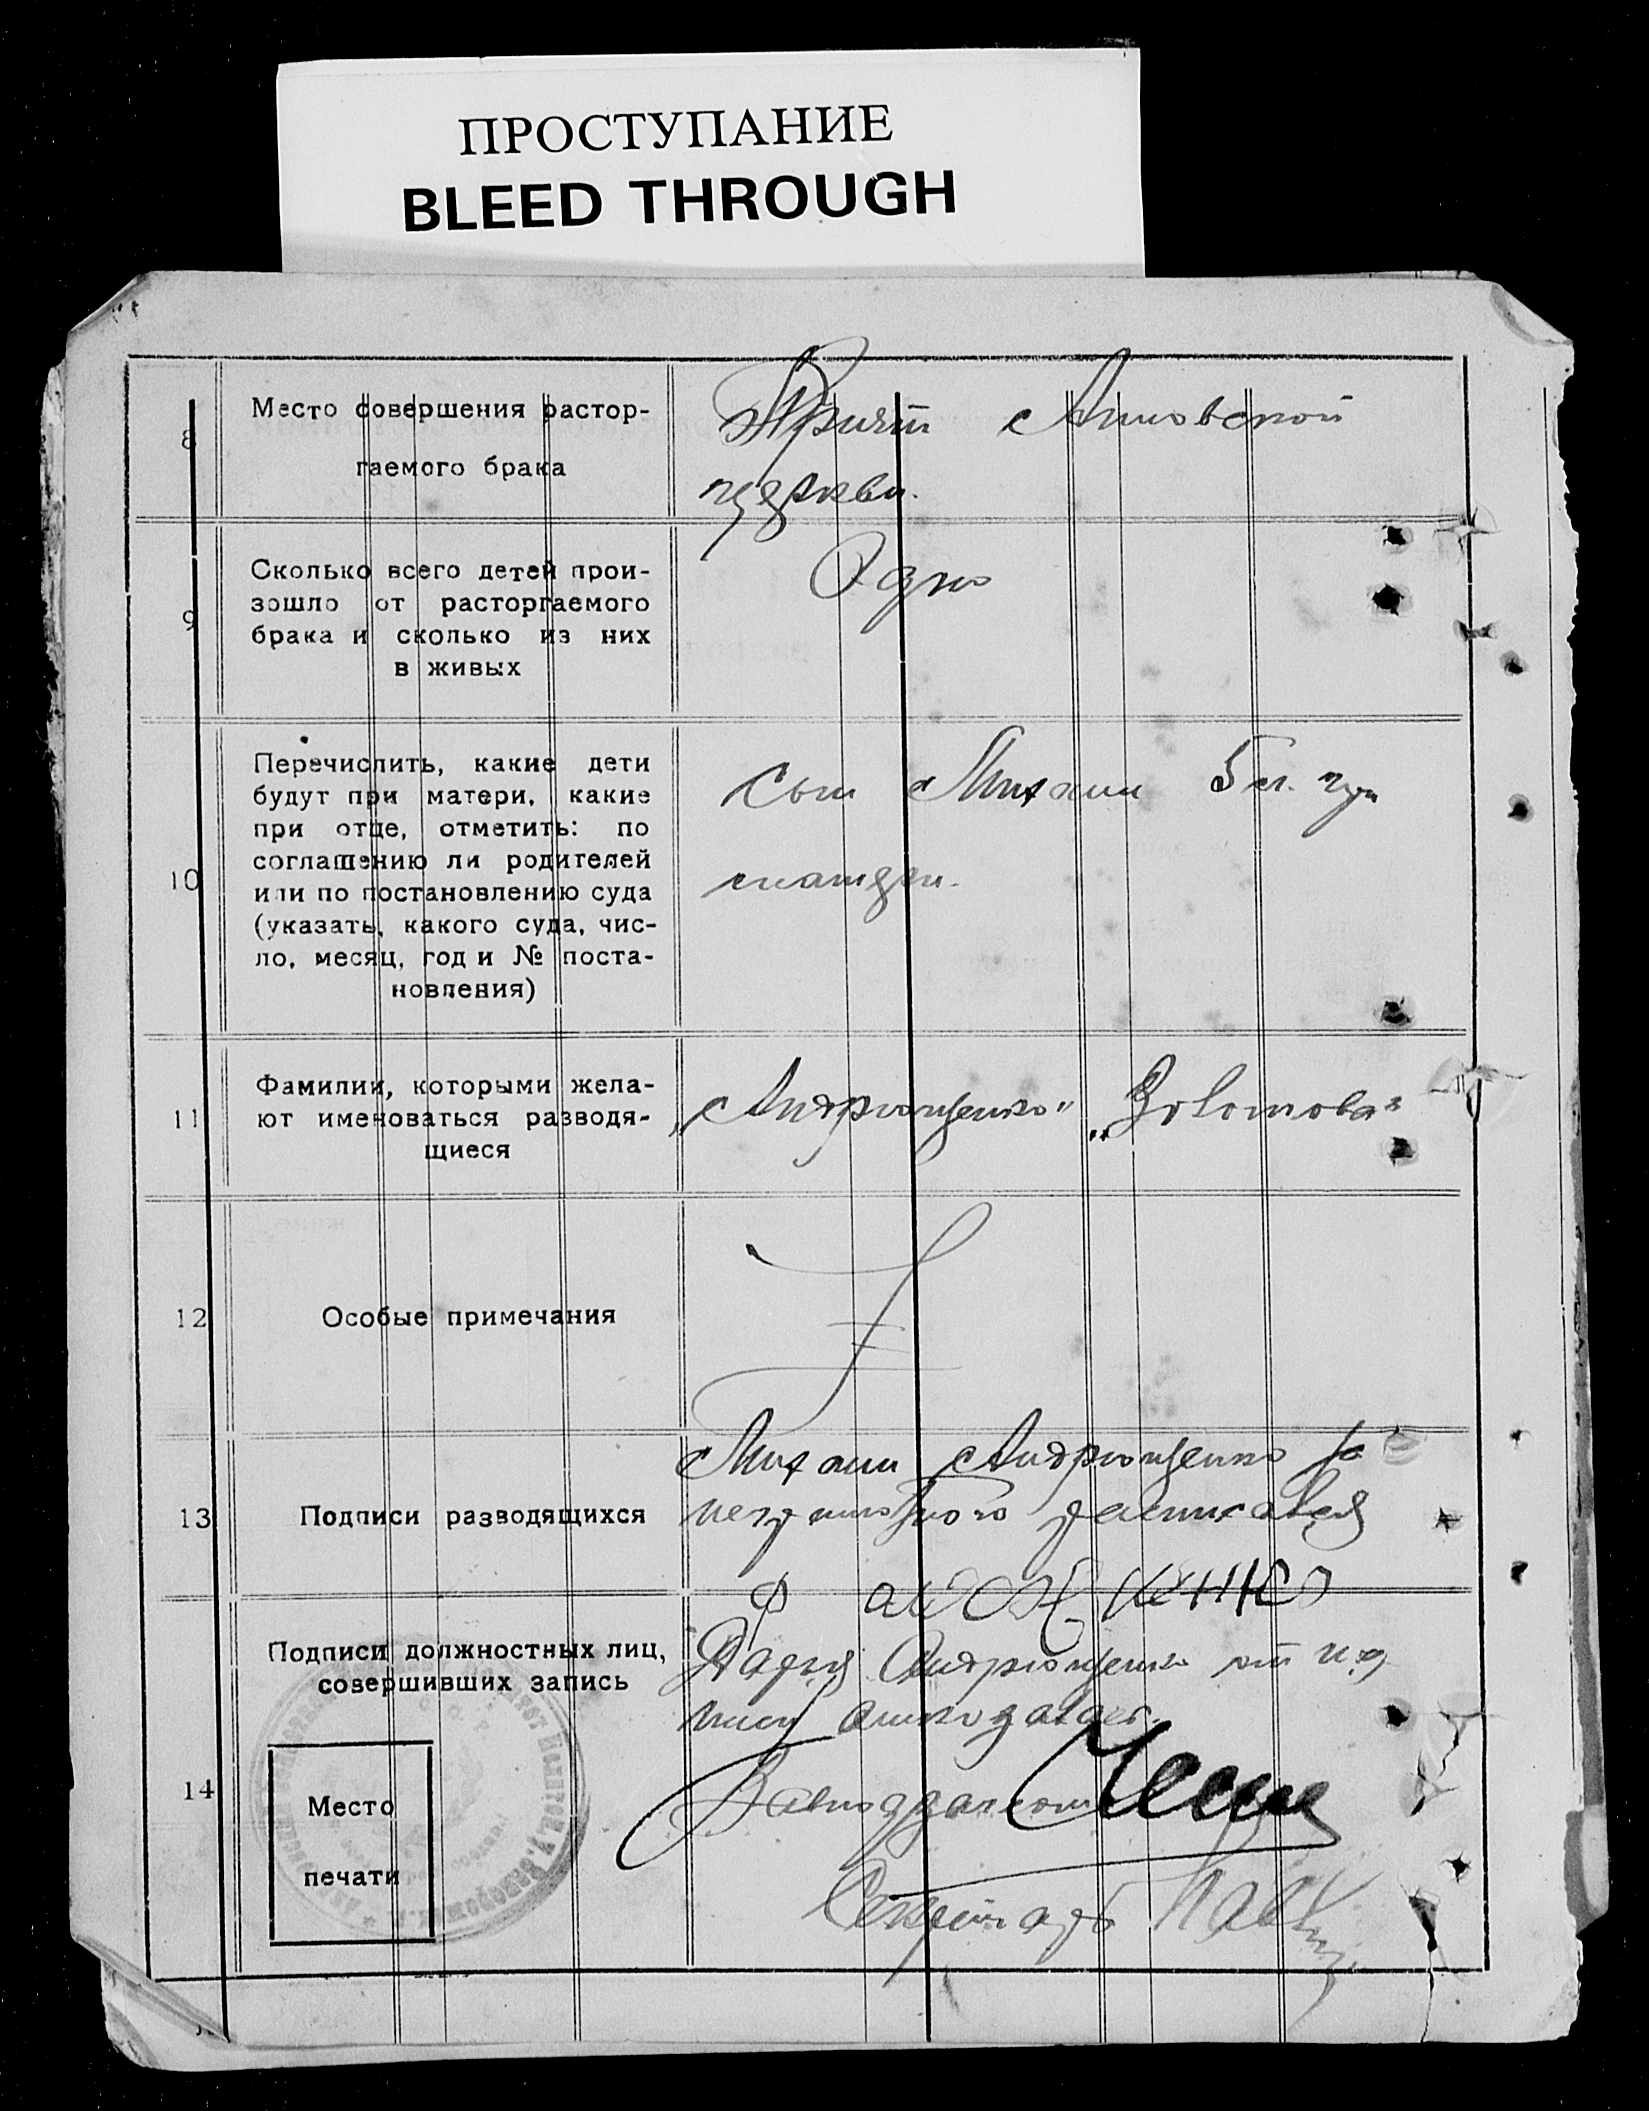 ПРОСТУПАНИЕ
BLEED THROUGH
8
Место совершения растор-
гаемого брака
Причт Анновской
церкви.
9
Сколько всего детей прои-
зошло от расторгаемого
брака и сколько из них
в живых
Одно
10
Перечислить, какие дети
будут при матери, какие
при отце, отметить: по
соглашению ли родителей
или по постановлению суда
(указать, какого суда, чис-
ло, месяц, год и № поста-
новления)
Сын Михаил 5 л. при
матери.
11
Фамилии, которыми жела-
ют именоваться разводя-
щиеся
„Андрющенко" „Золотова"
12
Особые примечания
13
Подписи разводящихся
Михаил Андрющенко за
неграмотного расписался
14
Подписи должностных лиц,
совершивших запись
Дарья Андрющенко от под
писи отказалась.
Завподзагсом
Секретарь
Место
печати